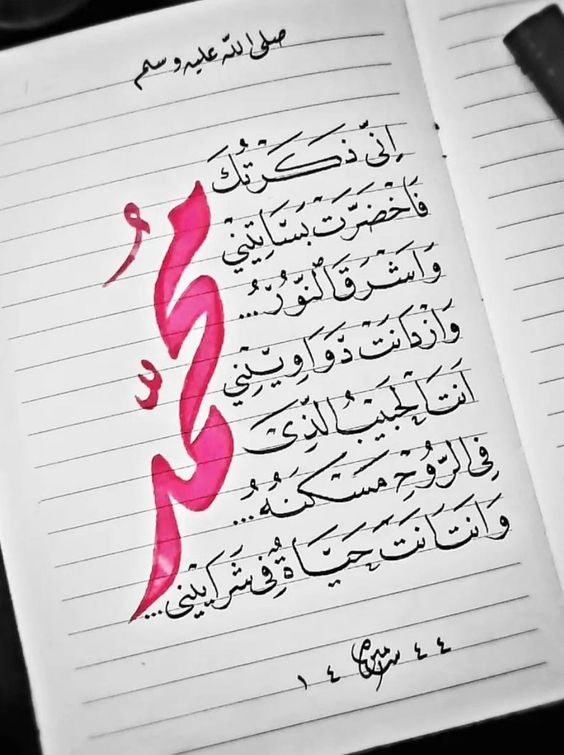 صلى الله عليه وسلم
مُحَمَّد
اِنّي ذَكَرْتُكَ
فَاخْضَرَّت بَسَاتِيْنِيْ
وَاَشْرَقَ النُّوْرُ...
وَازْدَانَتْ دَوَاوِيْنِي
اَنتَ الحَبِيْبُ الَّذِى
فِى الرُّوْحِ مَسْكَنُهُ...
وَاَنتَ اَنتَ حَيَاةٌ فِي شَرَايِيْنِي...
١٤ ٤٤